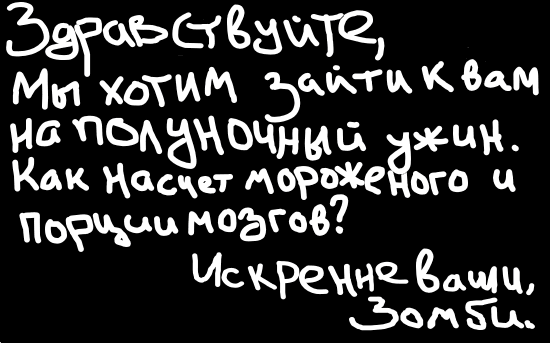 Здравствуйте,
Мы хотим зайти к вам
на полуночный ужин.
Как насчет мороженого и
порции мозгов?
Искренне ваши,
Зомби.